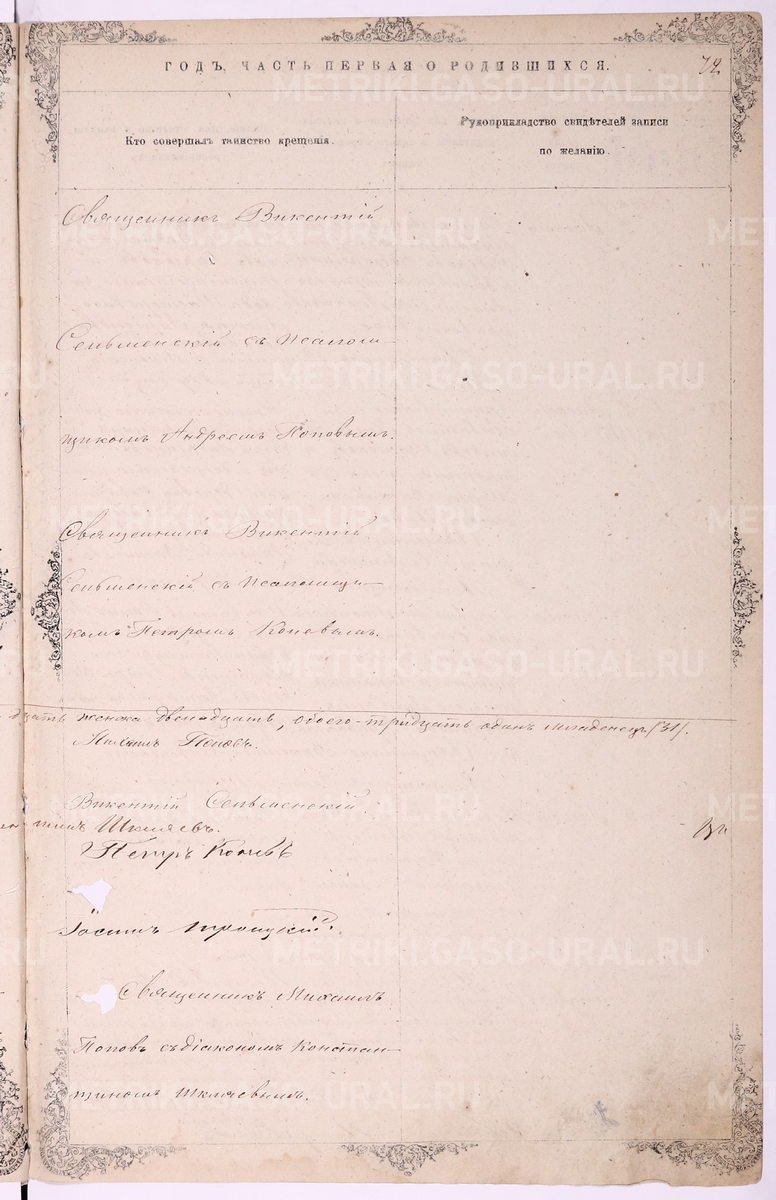 ГОДЪ, ЧАСТЬ ПЕРВАЯ О РОДИВШИХСЯ.
72
Кто совершалъ таинство крещенія.
Рукоприкладство свидѣтелей записи
по желанію.
Священникъ Викентій
Сельменскій съ псалом-
щикомъ Андреемъ Поповымъ.
Священникъ Викентій
Сельменскій съ псаломщи-
комъ Петромъ
дцать женска двенадцать, обоего-тридцать одинъ младенецъ (31).
Михаилъ Поповъ.
Викентій Сельменскій.
Шкляевъ.
Петръ
Троицкій.
Священникъ Михаилъ
Поповъ съ діакономъ Констан-
тиномъ Шкляевымъ.
METRIKI.GASO-URAL.RU